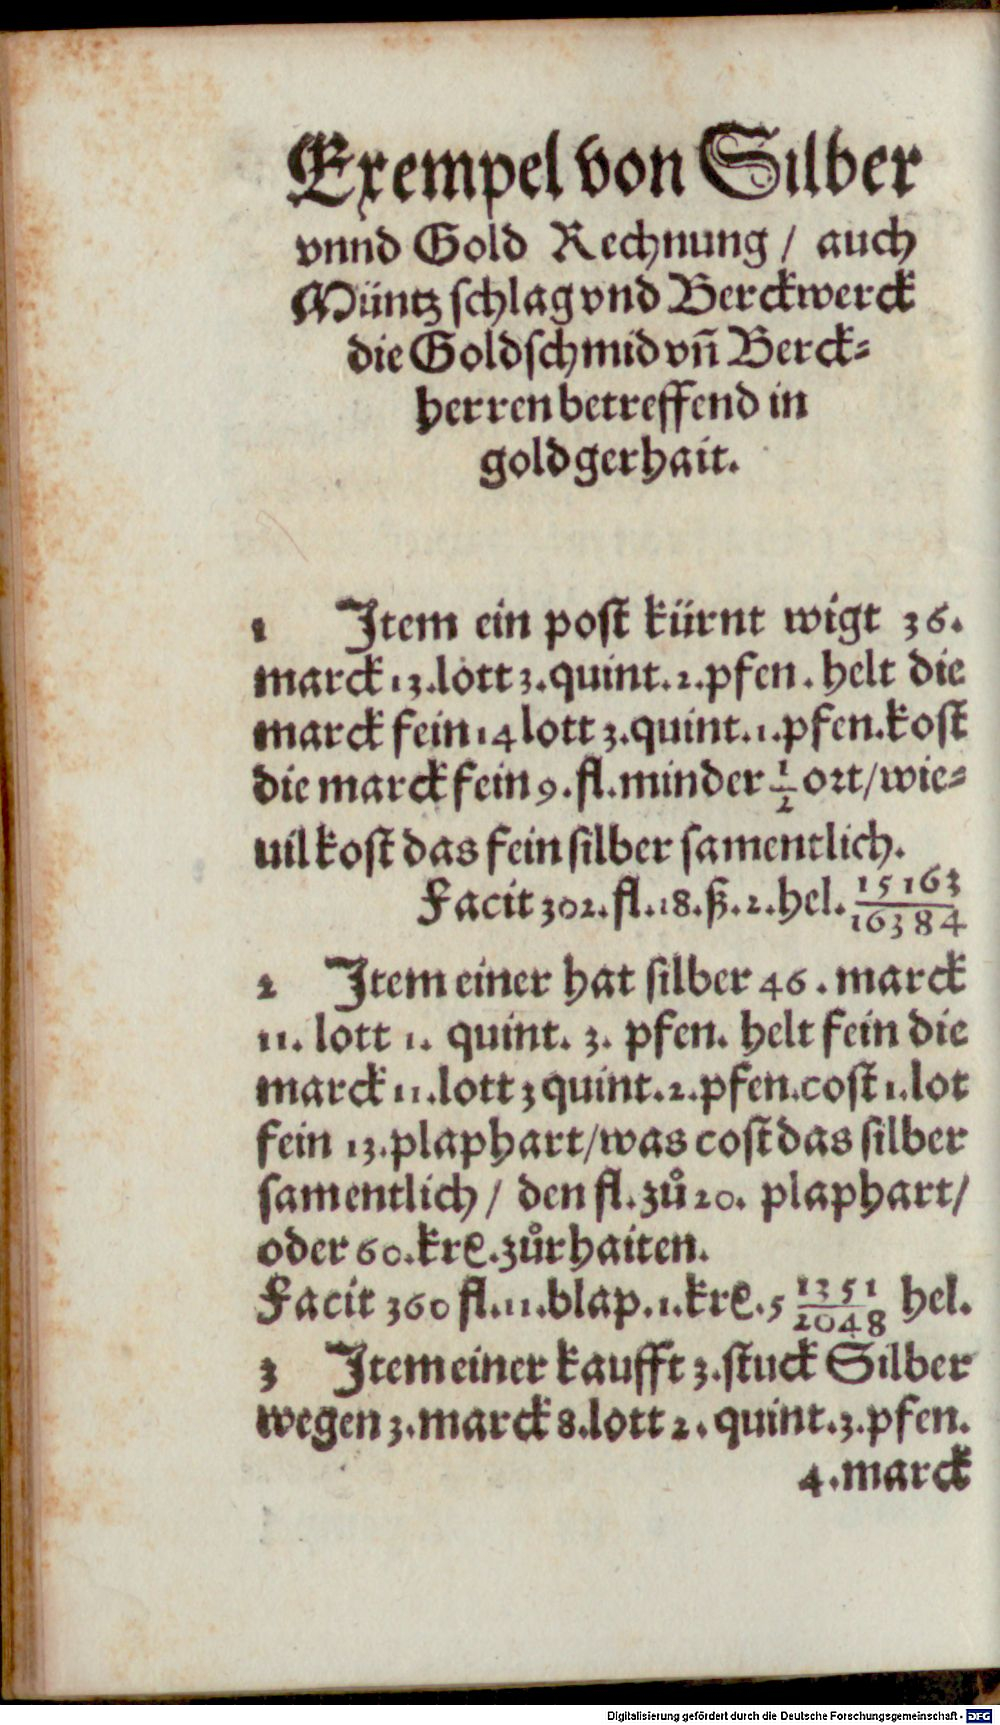 Exempel von Silber
vnnd Gold Rechnung / auch
Müntz schlag vnd Berckwerck
die Goldschmid vn̄ Berck⸗
herren betreffend in
goldgerhait.
1 Item ein post kürnt wigt 36.
marck 13. lott 3. quint. 2. pfen. helt die
marck fein 14 lott 3. quint. 1. pfen. kost
die marck fein 9. fl. minder 1/2 ort / wie⸗
uil kost das fein silber samentlich.
Facit 302. fl. 18. ß. 2. hel. 15163/16384
2 Item einer hat silber 46. marck
11. lott 1. quint. 3. pfen. helt fein die
marck 11. lott 3 quint. 2. pfen. cost 1. lot
fein 13. plaphart / was cost das silber
samentlich / den fl. zů 20. plaphart /
oder 60. krꝭ. zůrhaiten.
Facit 360 fl. 11. blap. 1. krꝭ. 5 1351/2048 hel.
3 Item einer kaufft 3. stuck Silber
wegen 3. marck 8. lott 2. quint. 3. pfen.
4. marck
Digitalisierung gefördert durch die Deutsche Forschungsgemeinschaft - DFG